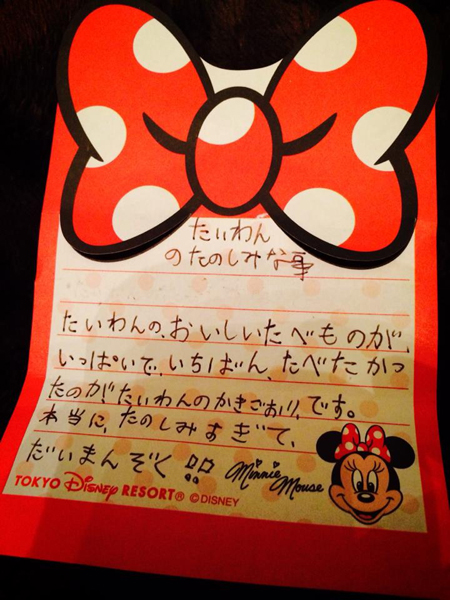 たいわん
のたのしみな事
たいわんの、おいしいたべものが、
いっぱいで、いちばん、たべたかっ
たのが、たいわんのかきごおり、です。
本当に、たのしみすぎて、
だいまんぞく!!
Minnie Mouse
TOKYO DISNEY RESORT® ©DISNEY